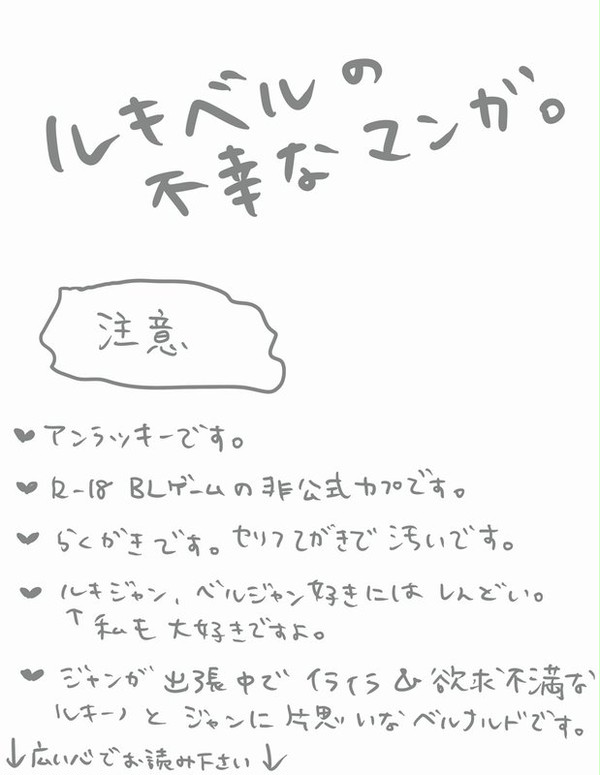 ルキベルの
不幸なマンガ。
注意
♥アンラッキーです。
♥R-18 BLゲームの非公式カプです。
♥らくがきです。セリフてがきで汚いです。
♥ルキジャン、ベルジャン好きにはしんどい。
↑私も大好きですよ。
♥ジャンが出張中でイライラ&欲求不満な
ルキーノとジャンに片思いなベルナルドです。
↓広い心でお読み下さい↓